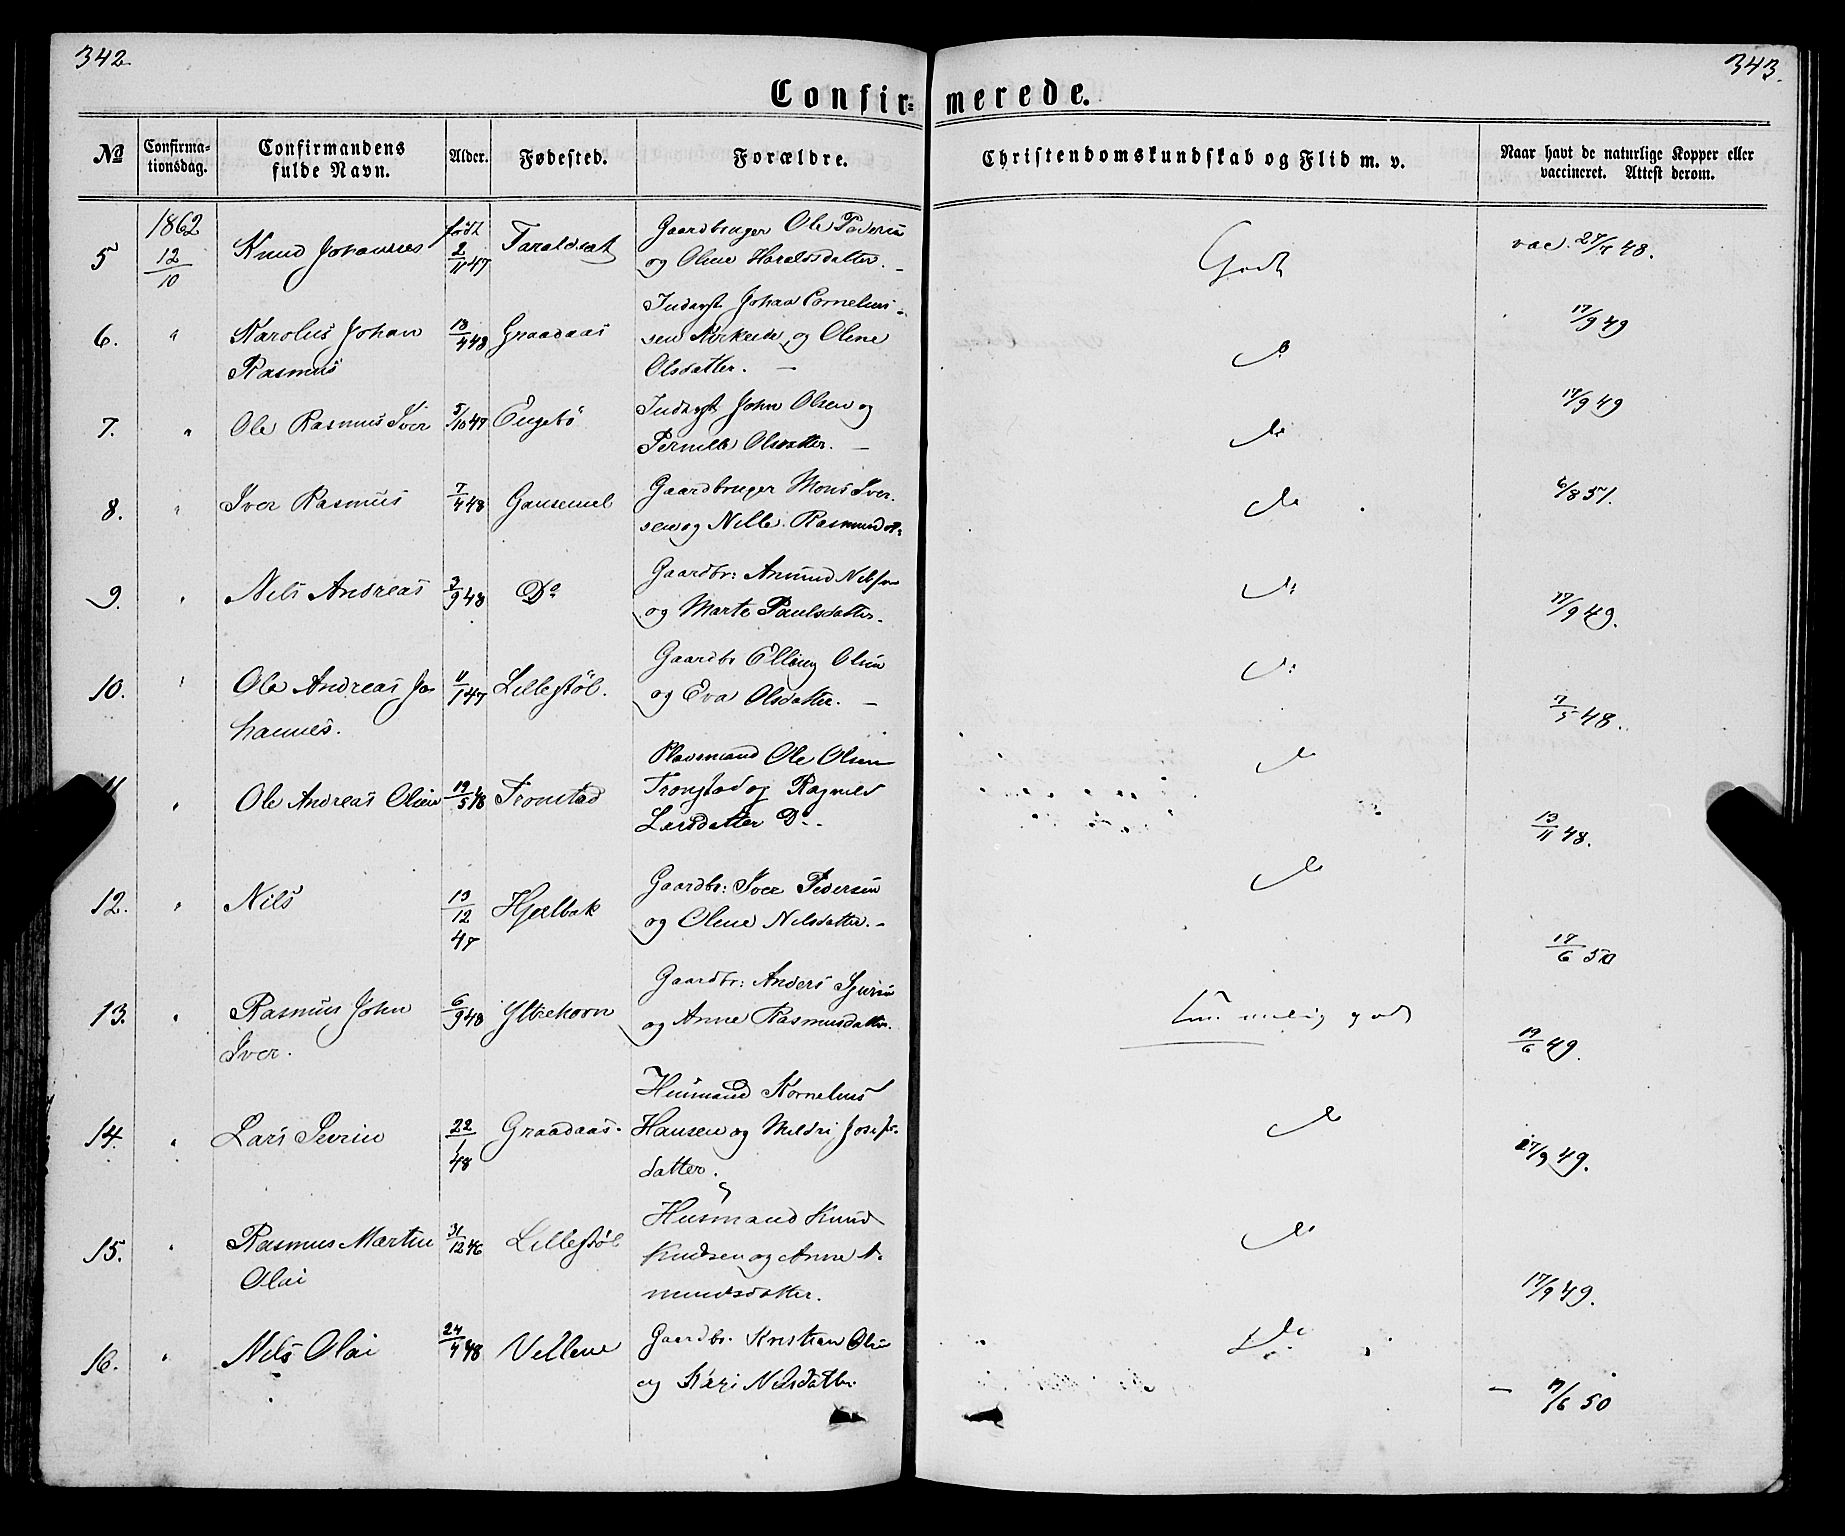 342.
343.
Confir= merede.
№ Confirma- tionsdag. Confirmandens fulde Navn. Alder. Fødested. Forældre. Christendomskundskab og Flid m. v. Naar havt de naturlige Kopper eller vaccineret. Attest derom.
1862 født Gaardbruger Ole
5 12/10 Knud Johannes 2/11 47 Taraldset og Oline Haraldsdatter. Godt vac. 27/ 48.
Indergst. Johan Cornelius-
6. " Karolus Johan 18/4 48 Graadaas sen og Oline do 17/9 49
Rasmus Olsdatter.
7. " Ole Rasmus Iver 5/10 47 Engebø Indergst John Olsen og do 17/9 49
Pernille Olsdatter.
8. " Iver Rasmus 7/4 48 Gausemel Gaardbruger Mons Iver- do 6/8 51.
sen og Nille Rasmusd
9. " Nils Andreas 3/9 48 Do Gaardbr: Amund Nilsen do 17/9 49.
og Marte Paulsdatter.
10. " Ole Andreas Jo- 11/1 47 Lillestøl. Gaardbr Elling Olsen do 7/5 48.
hannes. og Eva Olsdatter.
Pladsmand Ole Olsen
11 " Ole Andreas Olein 19/5 48 Tronstad Tronstad og Ragnild do 13/11 48.
Larsdatter Do.
12. " Nils 13/12 47 Hjelbak Gaardbr: Iver Pedersen do 17/6 50
og Olene Nilsdatter.
13. " Rasmus John 6/9 48 Ytrehorn Gaardbr: Anders Sjursen godt 19/6 49.
Iver. og Anne Rasmusdatter.
Husmand Kornelius
14. " Lars Severin 22/1 48 Graadaas. Hansen og Mildri Josefs- do 17/9 49.
datter.
Husmand Knud
15. " Rasmus Martin 31/12 46 Lillestøl Knudsen og Anne A- do 17/9 49.
Olai mundsdatter.
16. " Nils Olai 24/4 48 Vellene Gaardbr. Kristian Olsen do 17/6 50
og Kari Nilsdatter